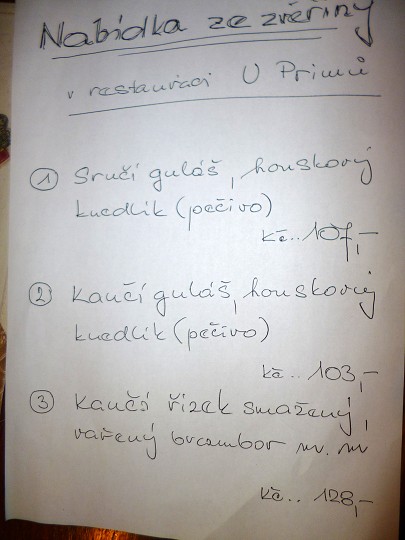 Nabídka ze zvěřiny
v restauraci U Primů
① Srnčí guláš, houskový
knedlík (pečivo)
Kč.. 107,–
② Kančí guláš, houskový
knedlík (pečivo)
Kč.. 103,–
③ Kančí řízek smažený,
vařený brambor m. m
Kč.. 128,–